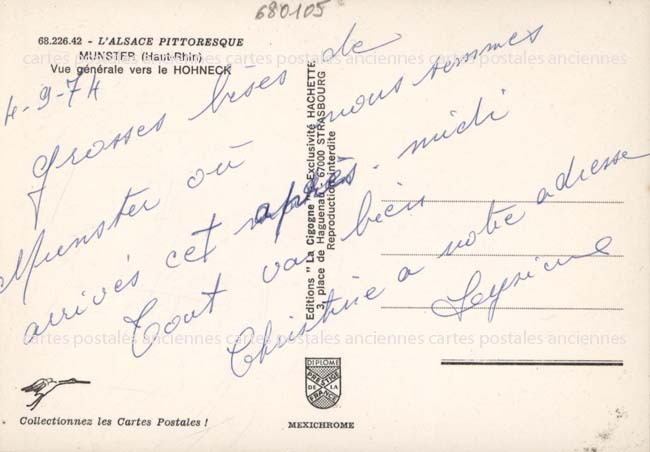 680105
68.226.42 - L'ALSACE PITTORESQUE
MUNSTER (Haut-Rhin)
Vue générale vers le HOHNECK
4-9-74
grosses bises de
Munster où nous sommes
arrivés cet après-midi
Tout va bien
Christine a notre adresse
Editions "La Cigogne" - Exclusivité HACHETTE
3, place de Haguenau, 67000 STRASBOURG
Reproduction interdite
cartes postales anciennes cartes postales anciennes cartes postales anciennes
cartes postales anciennes cartes postales anciennes cartes postales anciennes
DIPLOME
PRESTIGE
DE LA
FRANCE
Collectionnez les Cartes Postales !
MEXICHROME